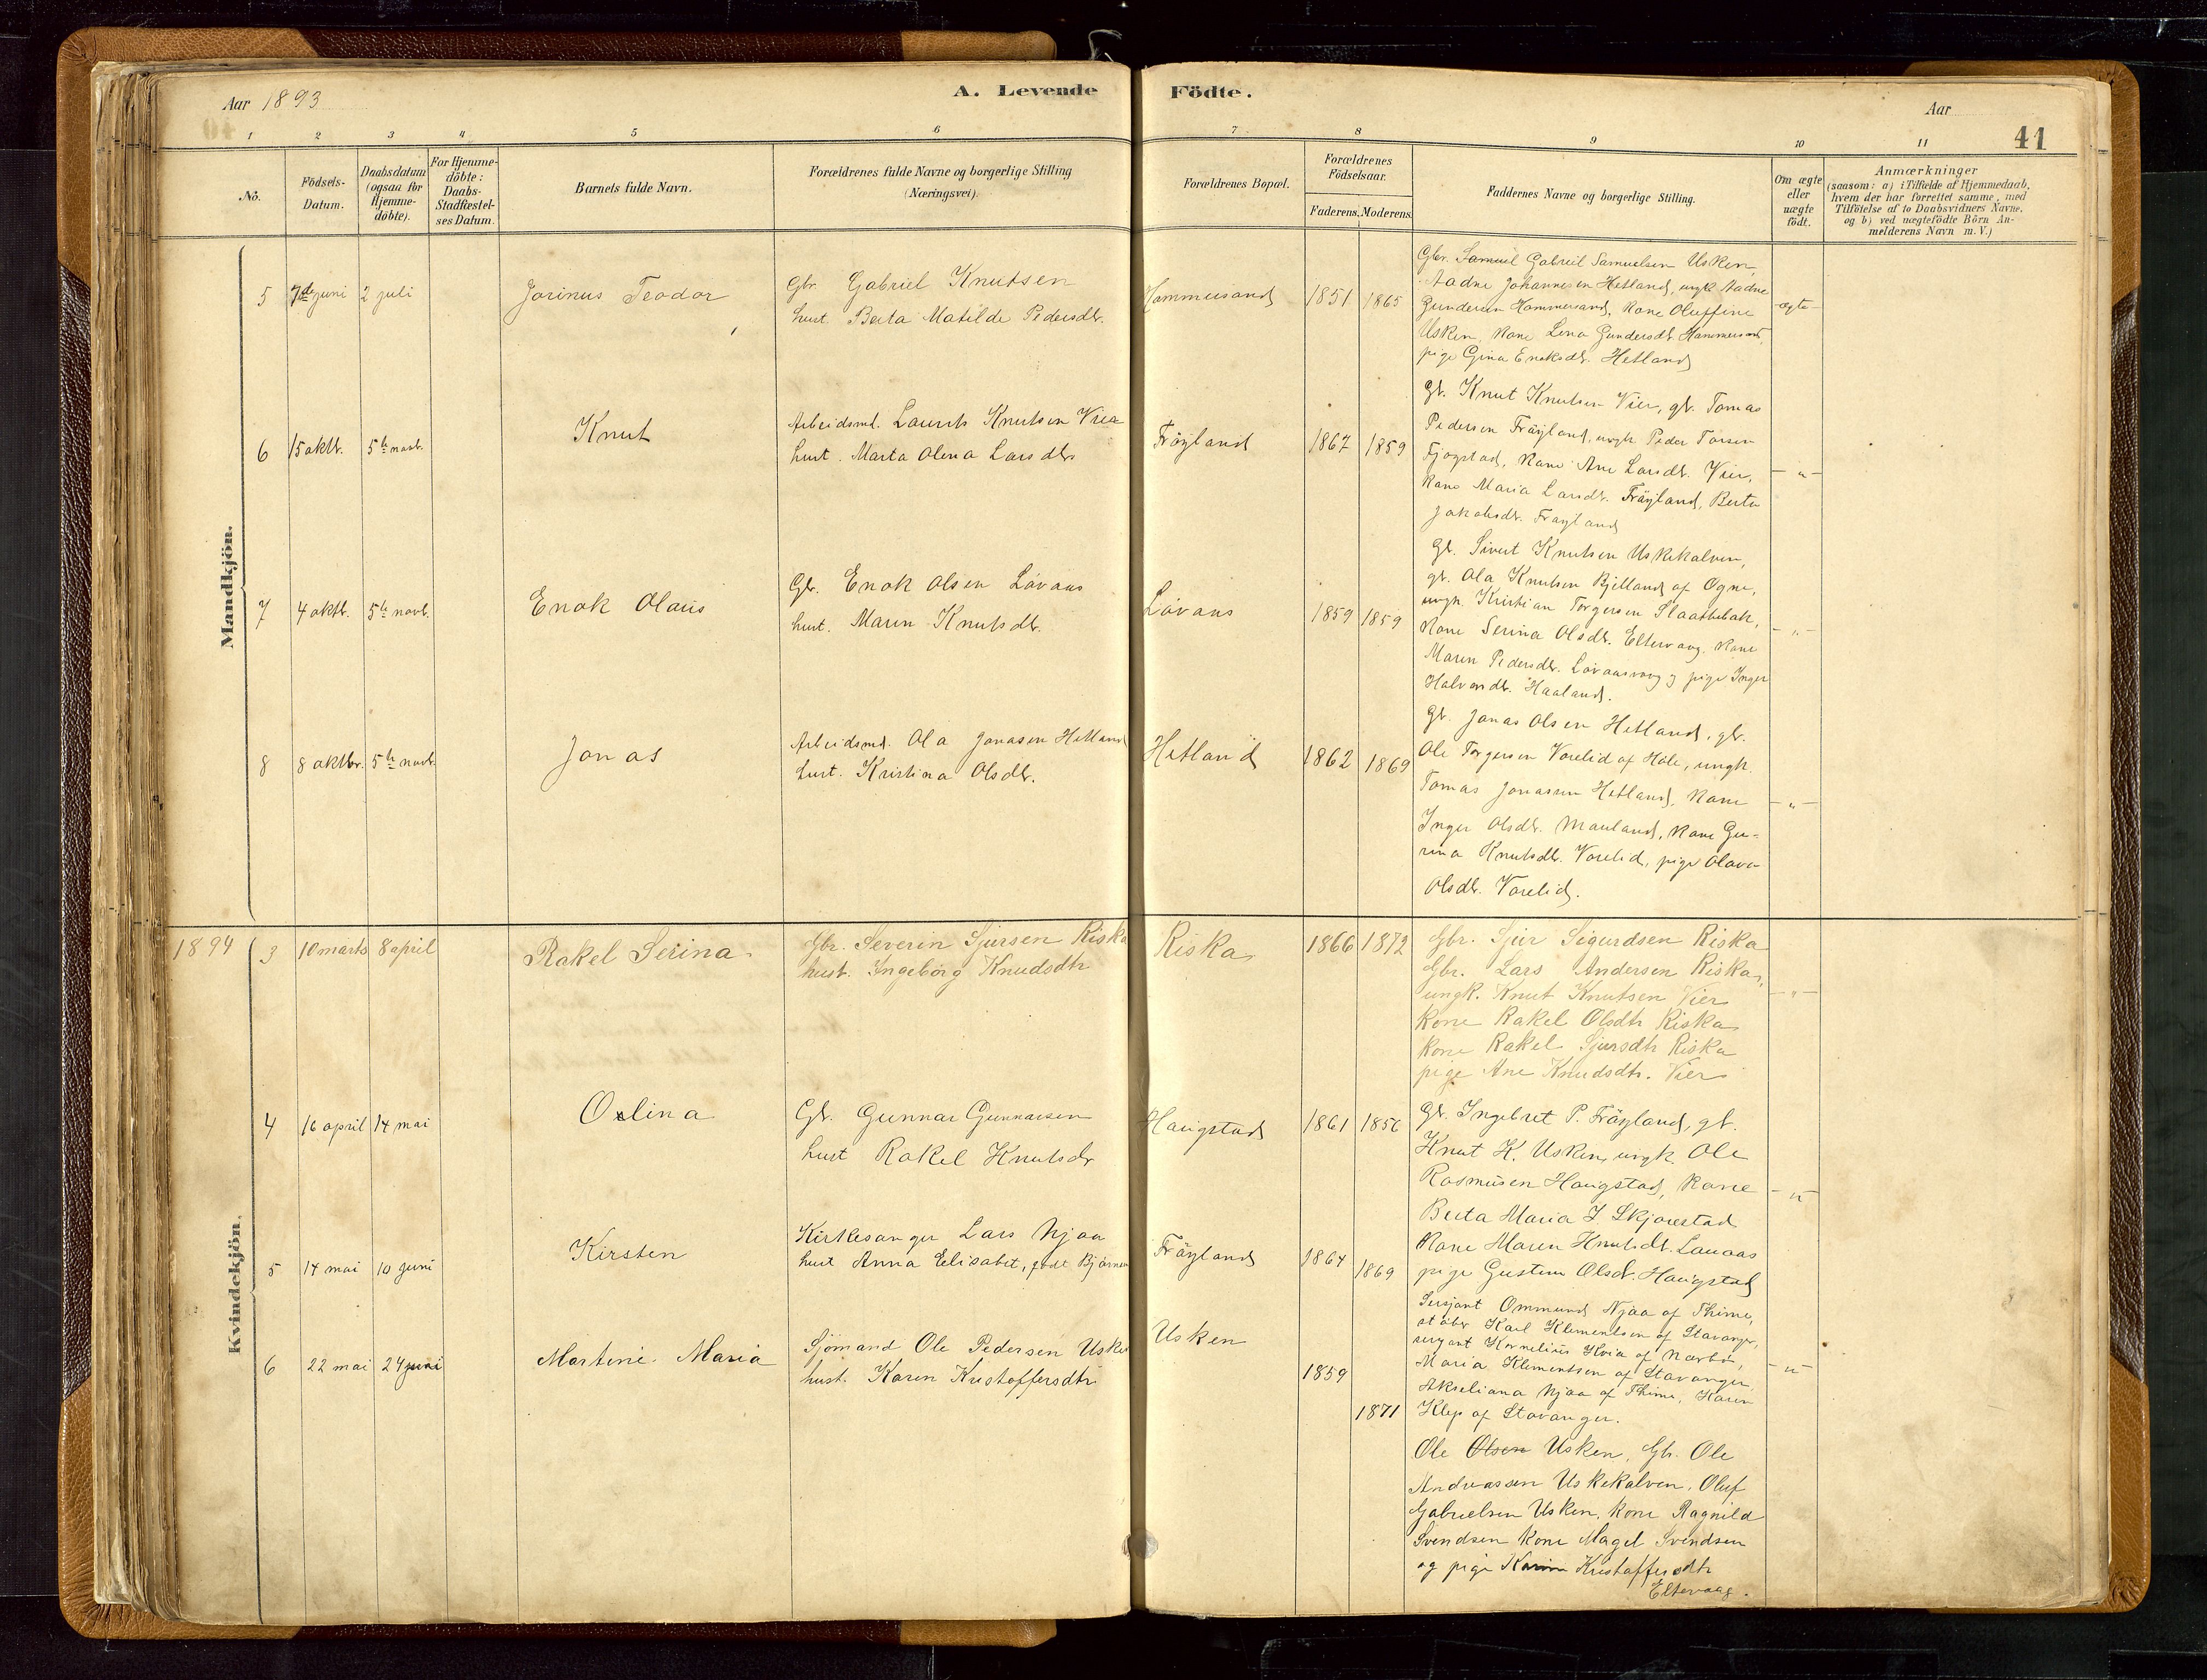 Aar 1893
A. Levende Födte.
Aar
41
1 2 3 4 5 6 7 8 9 10 11
No.
Födsels-Datum.
Daabsdatum (ogsaa for Hjemme-döbte).
For Hjemme-döbte: Daabs-Stadfæstel-ses Datum.
Barnets fulde Navn.
Forældrenes fulde Navne og borgerlige Stilling (Næringsvei).
Forældrenes Bopæl.
Forældrenes Födselsaar.
Faderens. Moderens.
Faddernes Navne og borgerlige Stilling.
Om ægte eller uægte födt.
Anmærkninger
(saasom: a) i Tilfælde af Hjemmedaab,
hvem der har forrettet samme, med
Tilföielse af to Daabsvidners Navne,
og b) ved uægtefödte Börn An-
melderens Navn m. V.)
Mandkjön.
5 7de juni 2 juli Jorinus Teodor
Gbr. Gabriel Knutsen
hust. Berta Matilde Pedersdtr.
Hommersand 1851 1865
Gbr. Samuel Gabriel Samuelsen Usken,
Aadne Johannesen Hetland, ungk. Aadne
Gundersen Hammersand, kone Oluffine
Usken, kone Lena Gundersdtr. Hammersand,
pige Gina Enoksdtr. Hetland
ægte
6 15 oktb. 5te novb. Knut
Arbeidsmd. Laurits Knutsen Vier
hust. Marta Olena Larsdtr.
Fröyland 1867 1859
Gb. Knut Knutsen Vier, gb. Tomas
Pedersen Fröyland, ungk. Peder Torsen
Fjogstad, kone Ane Larsdtr. Vier,
kone Maria Larsdtr. Fröyland, Berta
Jakobsdtr. Fröyland
- " -
7 4 oktb. 5te novb. Enok Olaus
Gb. Enok Olsen Lövaas
hust. Maren Knutsdtr.
Lövaas 1859 1859
Gb. Sivert Knutsen Uskekalven,
gb. Ola Knutsen Bjelland af Ogne,
ungk. Kristian Torgersen Slaattebak,
kone Serina Olsdtr. Eltervaag, kone
Maren Pedersdtr. Lövaasvaag og pige Inger
Halvorsdtr. Haaland.
- " -
8 8 oktbr. 5te novb. Jonas
Arbeidsmd. Ola Jonasen Hetland
hust. Kristina Olsdtr.
Hetland 1862 1869
Gb. Jonas Olsen Hetland, gbr.
Ole Torgersen Vorelid af Höle, ungk.
Tomas Jonassen Hetland, kone
Inger Olsdtr. Mauland, kone Gu-
rina Knutsdtr. Vorelid, pige Olava
Olsdtr. Vorelid.
- " -
1894
Kvindekjön.
3 10 marts 8 april Rakel Serina
Gbr. Severin Sjursen Riska
hust. Ingeborg Knudsdtr
Riska 1866 1872
Gbr. Sjur Sigurdsen Riska
Gbr. Lars Andersen Riska,
ungk. Knut Knutsen Vier
kone Rakel Olsdtr Riska
kone Rakel Sjursdtr Riska
pige Ane Knudsdtr. Vier
- " -
4 16 april 14 mai Oxlina
Gb. Gunnar Gunnarsen
hust Rakel Knutsdtr
Haugstad 1861 1856
Gb. Ingebret P. Fröyland, gb.
Knut K. Usken, ungk. Ole
Rasmusen Haugstad, kone
Berta Maria I. Skjorestad
kone Maren Knutsdtr. Lauaas
pige Gustine Olsdtr. Haugstad
- " -
5 14 mai 10 juni Kirsten
Kirkesanger Lars Njaa
hust Anna Elisabet, födt Bjørnsen
Fröyland 1864 1869
Sersjant Ommund Njaa af Thime,
Karl Klementsen af Stavanger,
sersjant Kornelius Hvia af Nærbö,
Maria Klementsen af Stavanger,
Akseliana Njaa af Thime, Karen
Klep af Stavanger.
- " -
6 22 mai 24 juni Martine Maria
Sjömand Ole Pedersen Usken
hust. Karen Kristoffersdtr
Usken 1859 1871
Ole Olsen Usken, Gb. Ole
Andreassen Uskekalven, Oluf
Gabrielsen Usken, kone Ragnild
Svendsen kone Magel Svendsen
og pige Karin Kristoffersdtr
Eltevaag.